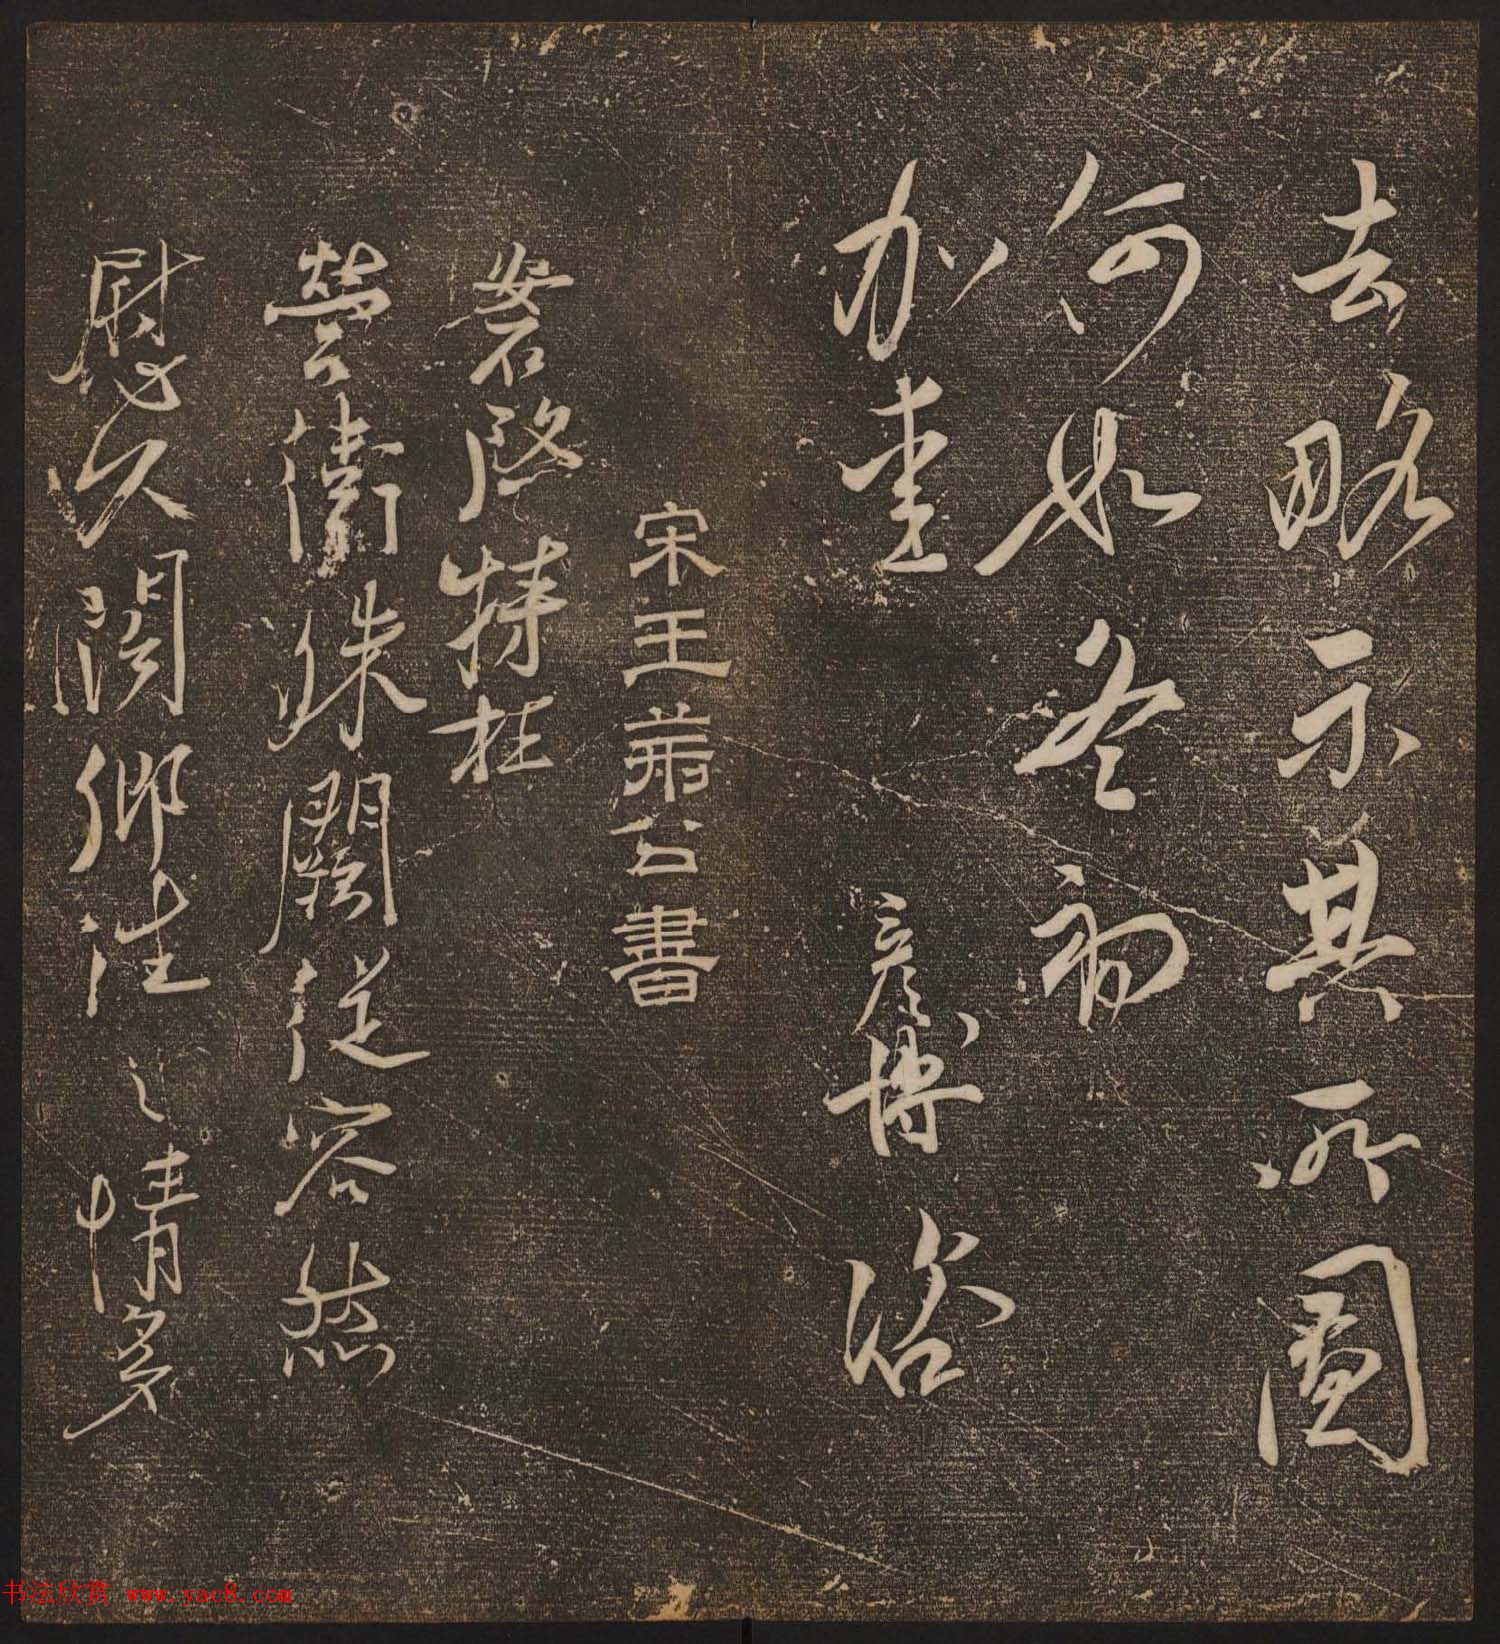 去略示其所圖
何如冬初
加 彥博
宋王荊公書
安石啓特枉
營衛殊闕從容然
慰久闊鄉往之情多
书法欣赏 www.yac8.com